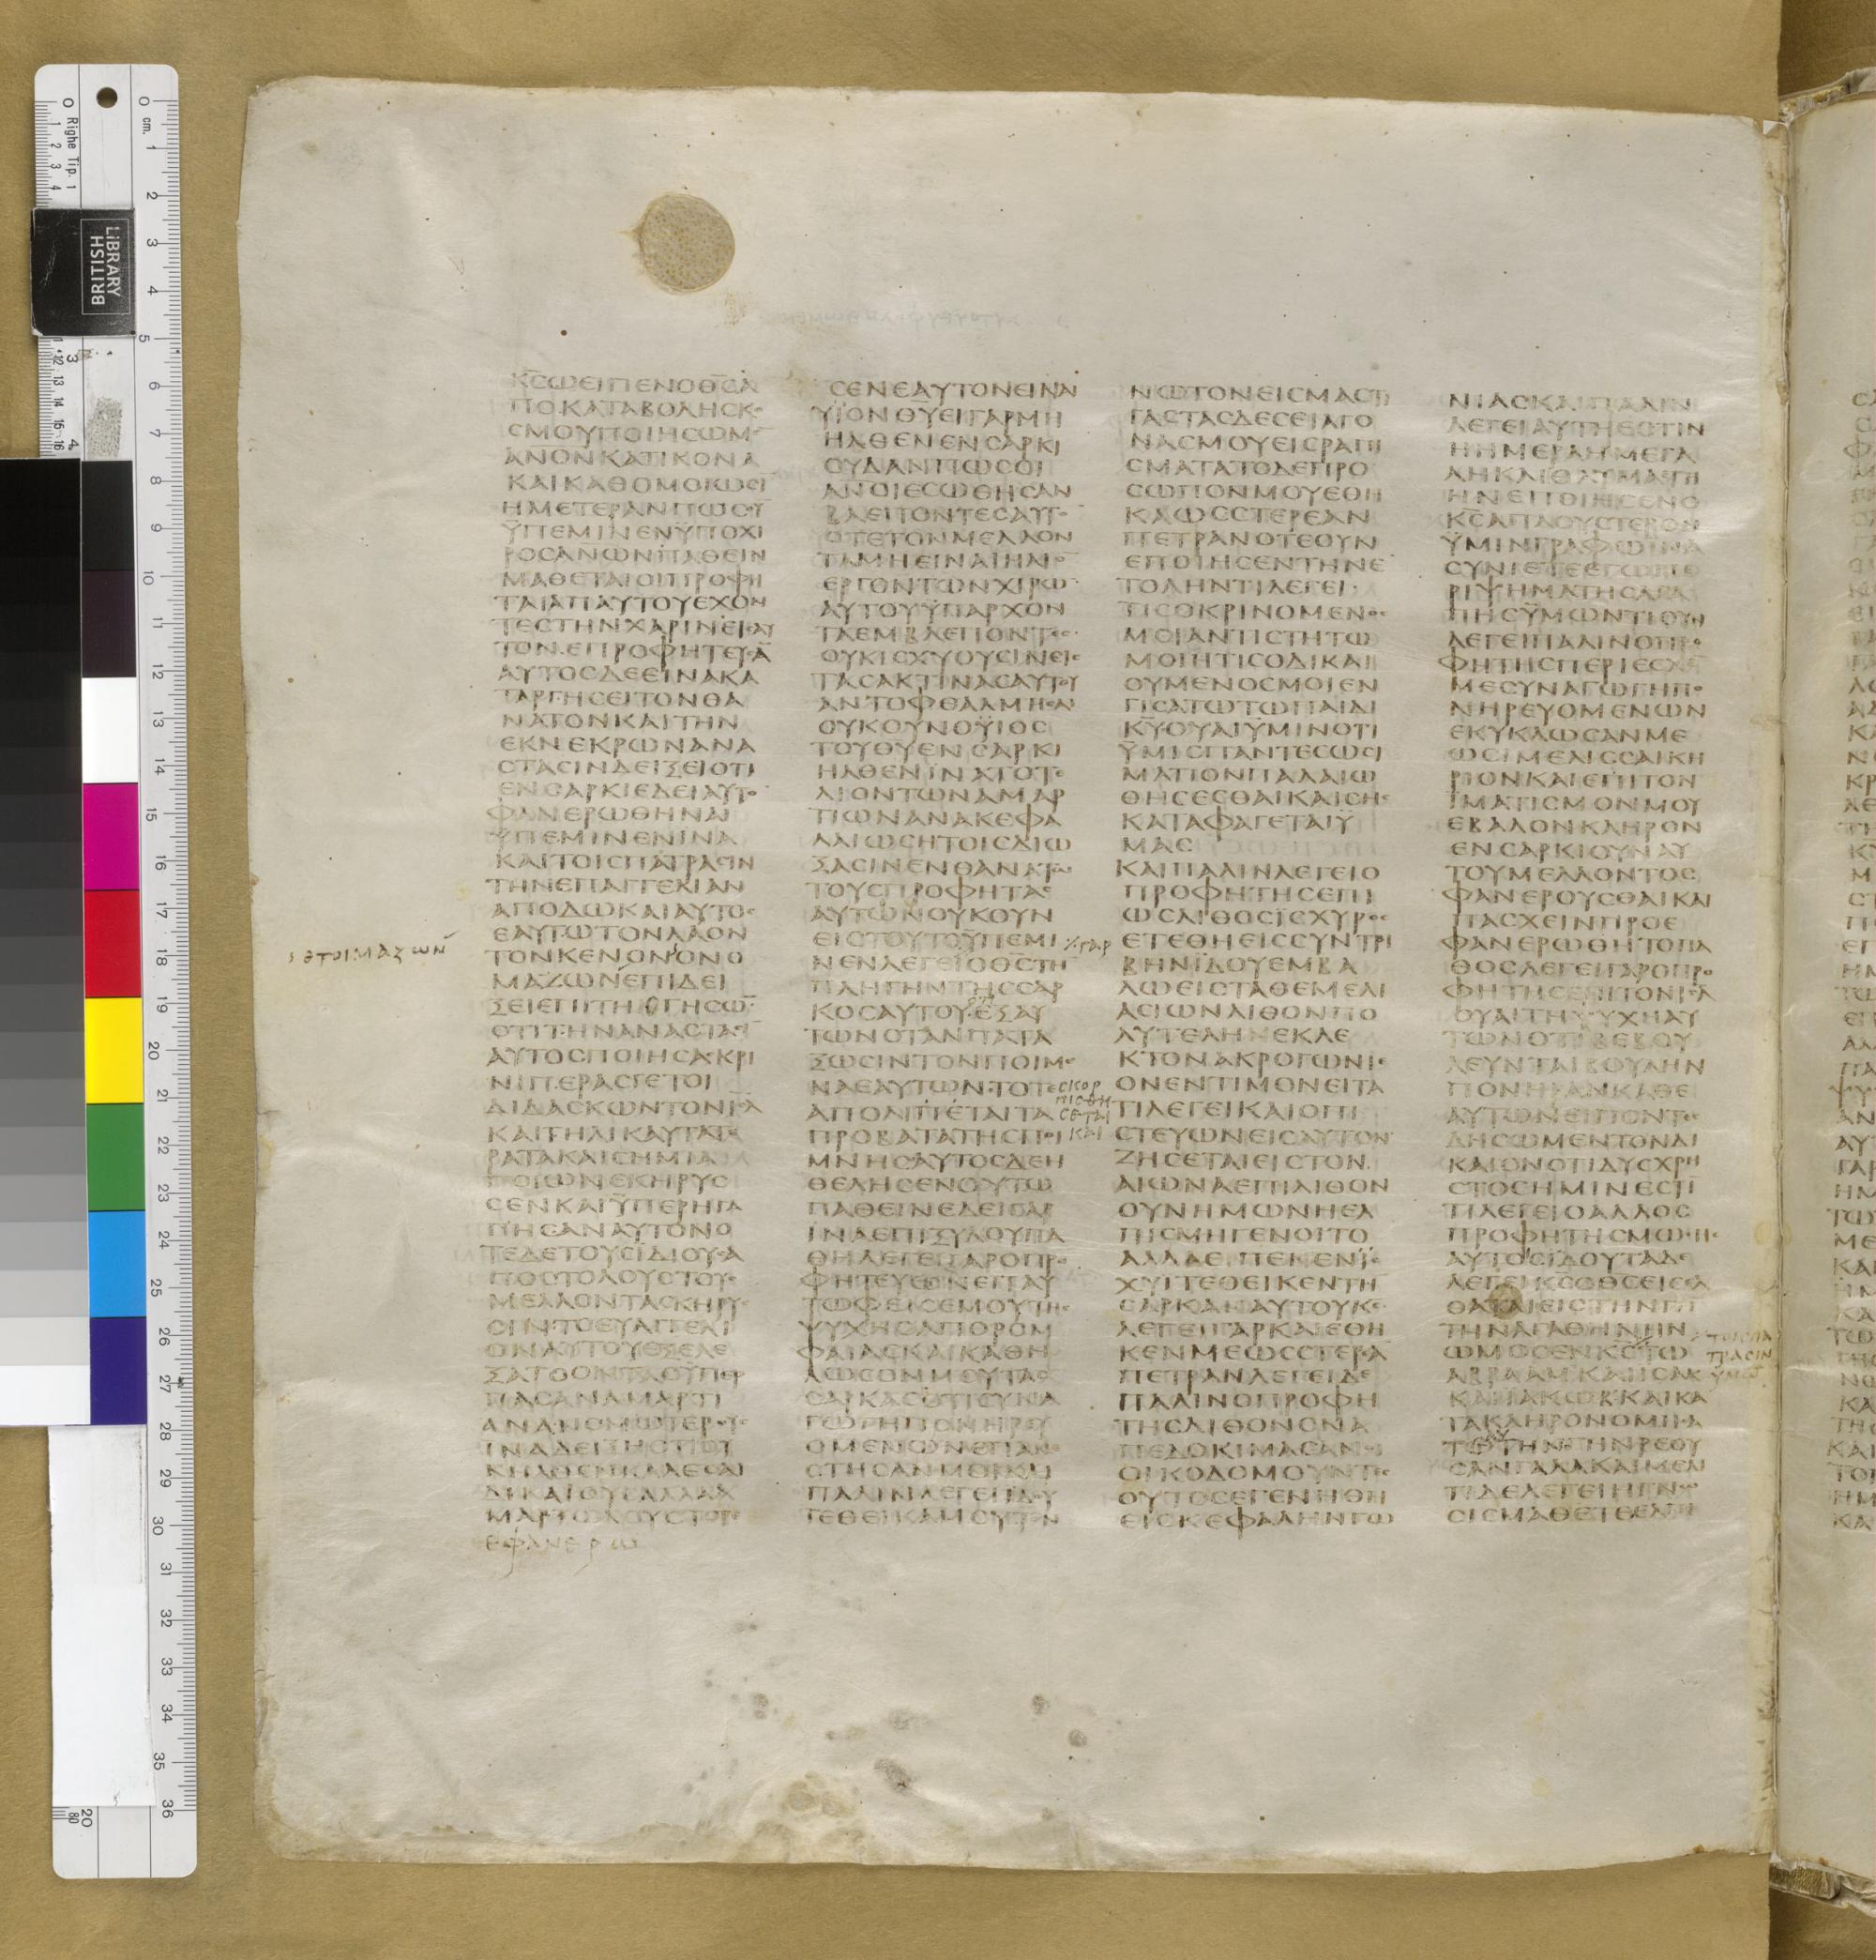 ΚϹΩΕΙΠΕΝΟΘϹΑ
ΠΟΚΑΤΑΒΟΛΗϹΚΟ
ϹΜΟΥΠΟΙΗϹΩΜΕ
ΑΝΟΝΚΑΤΙΚΟΝΑ
ΚΑΙΚΑΘΟΜΟΙΩϹΙ
ΗΜΕΤΕΡΑΝΠΩϹΟΥ
ΫΠΕΜΙΝΕΝΫΠΟΧΙ
ΡΟϹΑΝΩΝΠΑΘΕΙΝ
ΜΑΘΕΤΑΙΟΙΠΡΟΦΗ
ΤΑΙΑΠΑΥΤΟΥΕΧΟΝ
ΤΕϹΤΗΝΧΑΡΙΝΕΙϹΑΥ
ΤΟΝΕΠΡΟΦΗΤΕΥϹΑ
ΑΥΤΟϹΔΕΕΙΝΑΚΑ
ΤΑΡΓΗϹΕΙΤΟΝΘΑ
ΝΑΤΟΝΚΑΙΤΗΝ
ΕΚΝΕΚΡΩΝΑΝΑ
ϹΤΑϹΙΝΔΕΙΞΕΙΟΤΙ
ΕΝϹΑΡΚΙΕΔΕΙΑΥΤΟ
ΦΑΝΕΡΩΘΗΝΑΙ
ΫΠΕΜΙΝΕΝΙΝΑ
ΚΑΙΤΟΙϹΠΑΤΡΑϹΙΝ
ΤΗΝΕΠΑΓΓΕΛΙΑΝ
ΑΠΟΔΩΚΑΙΑΥΤΟϹ
ΕΑΥΤΩΤΟΝΛΑΟΝ
ΕΤΟΙΜΑΖΩΝ
ΤΟΝΚΕΝΟΝΟΝΟ
ΜΑΖΩΝΕΠΙΔΕΙ
ΞΕΙΕΠΙΤΗϹΓΗϹΩ
ΟΤΙΤΗΝΑΝΑϹΤΑϹΙ
ΑΥΤΟϹΠΟΙΗϹΑϹΚΡΙ
ΝΙΠΕΡΑϹΓΕΤΟΙ
ΔΙΔΑϹΚΩΝΤΟΝΙϹΛ
ΚΑΙΤΗΛΙΚΑΥΤΑΤΕ
ΡΑΤΑΚΑΙϹΗΜΙΑ
ΠΟΙΩΝΕΚΗΡΥϹ
ϹΕΝΚΑΙΫΠΕΡΗΓΑ
ΠΗϹΑΝΑΥΤΟΝΟ
ΤΕΔΕΤΟΥϹΪΔΙΟΥϹΑ
ΠΟϹΤΟΛΟΥϹΤΟΥϹ
ΜΕΛΛΟΝΤΑϹΚΗΡΥϹ
ϹΙΝΤΟΕΥΑΓΓΕΛΙ
ΟΝΑΥΤΟΥΕΞΕΛΕ
ΞΑΤΟΟΝΤΑϹΫΠΕΡ
ΠΑϹΑΝΑΜΑΡΤΙ
ΑΝΑΝΟΜΩΤΕΡΟΥϹ
ΙΝΑΔΕΙΞΗΟΤΙΟΥ
ΚΗΛΘΕΝΚΑΛΕϹΑΙ
ΔΙΚΑΙΟΥϹΑΛΛΑΑ
ΜΑΡΤΩΛΟΥϹΤΟΤΕ
ΕΦΑΝΕΡΩ
ϹΕΝΕΑΥΤΟΝΕΙΝΑΙ
ΥΪΟΝΘΥΕΙΓΑΡΜΗ
ΗΛΘΕΝΕΝϹΑΡΚΙ
ΟΥΔΑΝΠΩϹΟΙ
ΑΝΟΙΕϹΩΘΗϹΑΝ
ΒΛΕΠΟΝΤΕϹΑΥΤΟ
ΟΤΕΤΟΝΜΕΛΛΟΝ
ΤΑΜΗΕΙΝΑΙΗΛΙΟ
ΕΡΓΟΝΤΩΝΧΙΡΩ
ΑΥΤΟΥΫΠΑΡΧΟΝ
ΤΑΕΜΒΛΕΠΟΝΤΕϹ
ΟΥΚΙϹΧΥΟΥϹΙΝΕΙϹ
ΤΑϹΑΚΤΙΝΑϹΑΥΤΟΥ
ΑΝΤΟΦΘΑΛΜΗϹΑΙ
ΟΥΚΟΥΝΟΫΙΟϹ
ΤΟΥΘΥΕΝϹΑΡΚΙ
ΗΛΘΕΝΙΝΑΤΟΤΕ
ΛΙΟΝΤΩΝΑΜΑΡ
ΤΙΩΝΑΝΑΚΕΦΑ
ΛΑΙΩϹΗΤΟΙϹΔΙΩ
ΞΑϹΙΝΕΝΘΑΝΑΤΩ
ΤΟΥϹΠΡΟΦΗΤΑϹ
ΑΥΤΩΝΟΥΚΟΥΝ
ΕΙϹΤΟΥΤΟΫΠΕΜΙ
ΝΕΝΛΕΓΕΙΟΘϹΤΗ
ΓΑΡ
ΠΛΗΓΗΝΤΗϹϹΑΡ
ΚΟϹΑΥΤΟΥΕΞΑΥ
ΟΤΙ
ΤΩΝΟΤΑΝΠΑΤΑ
ΞΩϹΙΝΤΟΝΠΟΙΜΕ
ΝΑΕΑΥΤΩΝΤΟΤΕ
ΑΠΟΛΙΤΕΤΑΙΤΑ
ϹΚΟΡ
ΠΙϹΘΗ
ϹΕΤΑΙ
ΚΑΙ
ΠΡΟΒΑΤΑΤΗϹΠΟΙ
ΜΝΗϹΑΥΤΟϹΔΕΗ
ΘΕΛΗϹΕΝΟΥΤΩ
ΠΑΘΕΙΝΕΔΕΙΓΑΡ
ΙΝΑΕΠΙΞΥΛΟΥΠΑ
ΘΗΛΕΓΕΙΓΑΡΟΠΡΟ
ΦΗΤΕΥΩΝΕΠΑΥ
ΤΩΦΕΙϹΕΜΟΥΤΗϹ
ΨΥΧΗϹΑΠΟΡΟΜ
ΦΑΙΑϹΚΑΙΚΑΘΗ
ΛΩϹΟΝΜΟΥΤΑϹ
ϹΑΡΚΑϹΟΤΙϹΥΝΑ
ΓΩΓΗΠΟΝΗΡΕΥ
ΟΜΕΝΩΝΕΠΑΝΕ
ϹΤΗϹΑΝΜΟΙΚΑΙ
ΠΑΛΙΝΛΕΓΕΙΪΔΟΥ
ΤΕΘΕΙΚΑΜΟΥΤΟΝ
ΝΩΤΟΝΕΙϹΜΑϹΤΙ
ΓΑϹΤΑϹΔΕϹΕΙΑΓΟ
ΝΑϹΜΟΥΕΙϹΡΑΠΙ
ϹΜΑΤΑΤΟΔΕΠΡΟ
ϹΩΠΟΝΜΟΥΕΘΗ
ΚΑΩϹϹΤΕΡΕΑΝ
ΠΕΤΡΑΝΟΤΕΟΥΝ
ΕΠΟΙΗϹΕΝΤΗΝΕ
ΤΟΛΗΝΤΙΛΕΓΕΙ
ΤΙϹΟΚΡΙΝΟΜΕΝΟϹ
ΜΟΙΑΝΤΙϹΤΗΤΩ
ΜΟΙΗΤΙϹΟΔΙΚΑΙ
ΟΥΜΕΝΟϹΜΟΙΕΝ
ΓΙϹΑΤΩΤΩΠΑΙΔΙ
ΚΥΟΥΑΙΫΜΙΝΟΤΙ
ΫΜΙϹΠΑΝΤΕϹΩϹΙ
ΜΑΤΙΟΝΠΑΛΑΙΩ
ΘΗϹΕϹΘΑΙΚΑΙϹΗϹ
ΚΑΤΑΦΑΓΕΤΑΙΫ
ΜΑϹ
ΚΑΙΠΑΛΙΝΛΕΓΕΙΟ
ΠΡΟΦΗΤΗϹΕΠΙ
ΩϹΛΙΘΟϹΙϹΧΥΡΟϹ
ΕΤΕΘΗΕΙϹϹΥΝΤΡΙ
ΒΗΝΪΔΟΥΕΜΒΑ
ΛΩΕΙϹΤΑΘΕΜΕΛΙ
ΑϹΙΩΝΛΙΘΟΝΠΟ
ΛΥΤΕΛΗΝΕΚΛΕ
ΚΤΟΝΑΚΡΟΓΩΝΙΕ
ΟΝΕΝΤΙΜΟΝΕΙΤΑ
ΤΙΛΕΓΕΙΚΑΙΟΠΙ
ϹΤΕΥΩΝΕΙϹΑΥΤΟΝ
ΖΗϹΕΤΑΙΕΙϹΤΟΝ
ΑΙΩΝΑΕΠΙΛΙΘΟΝ
ΟΥΝΗΜΩΝΗΕΛ
ΠΙϹΜΗΓΕΝΟΙΤΟ
ΑΛΛΑΕΠΕΙΕΝΪ
ΧΥΪΤΕΘΕΙΚΕΝΤΗ
ϹΑΡΚΑΑΥΤΟΥΚϹ
ΛΕΓΕΙΓΑΡΚΑΙΕΘΗ
ΚΕΝΜΕΩϹϹΤΕΡΕΑ
ΠΕΤΡΑΝΛΕΓΕΙΔΕ
ΠΑΛΙΝΟΠΡΟΦΗ
ΤΗϹΛΙΘΟΝΟΝΑ
ΠΕΔΟΚΙΜΑϹΑΝΟΙ
ΟΙΚΟΔΟΜΟΥΝΤΕϹ
ΟΥΤΟϹΕΓΕΝΗΘΗ
ΕΙϹΚΕΦΑΛΗΝΓΩ
ΝΙΑϹΚΑΙΠΑΛΙΝ
ΛΕΓΕΙΑΥΤΗΕϹΤΙΝ
ΗΗΜΕΡΑΗΜΕΓΑ
ΛΗΚΑΙΘΑΥΜΑϹΤΗ
ΗΝΕΠΟΙΗϹΕΝΟ
ΚϹΑΠΛΟΥϹΤΕΡΟΝ
ΫΜΙΝΓΡΑΦΩΙΝΑ
ϹΥΝΙΕΤΕΕΓΩΠΕ
ΡΙΨΗΜΑΤΗϹΑΓΑ
ΠΗϹΫΜΩΝΤΙΟΥΝ
ΛΕΓΕΙΠΑΛΙΝΟΠΡΟ
ΦΗΤΗϹΠΕΡΙΕϹΧΕ
ΜΕϹΥΝΑΓΩΓΗΠΟ
ΝΗΡΕΥΟΜΕΝΩΝ
ΕΚΥΚΛΩϹΑΝΜΕ
ΩϹΙΜΕΛΙϹϹΑΙΚΗ
ΡΙΟΝΚΑΙΕΠΙΤΟΝ
ΪΜΑΤΙϹΜΟΝΜΟΥ
ΕΒΑΛΟΝΚΛΗΡΟΝ
ΕΝϹΑΡΚΙΟΥΝΑΥ
ΤΟΥΜΕΛΛΟΝΤΟϹ
ΦΑΝΕΡΟΥϹΘΑΙΚΑΙ
ΠΑϹΧΕΙΝΠΡΟΕ
ΦΑΝΕΡΩΘΗΤΟΠΑ
ΘΟϹΛΕΓΕΙΓΑΡΟΠΡΟ
ΦΗΤΗϹΕΠΙΤΟΝΙϹΛ
ΟΥΑΙΤΗΨΥΧΗΑΥ
ΤΩΝΟΤΙΒΕΒΟΥ
ΛΕΥΝΤΑΙΒΟΥΛΗΝ
ΠΟΝΗΡΑΝΚΑΘΕ
ΑΥΤΩΝΕΙΠΟΝΤΕϹ
ΔΗϹΩΜΕΝΤΟΝΔΙ
ΚΑΙΟΝΟΤΙΔΥϹΧΡΗ
ϹΤΟϹΗΜΙΝΕϹΤΙ
ΤΙΛΕΓΕΙΟΑΛΛΟϹ
ΠΡΟΦΗΤΗϹΜΩϹΗϹ
ΑΥΤΟΙϹΪΔΟΥΤΑΔΕ
ΛΕΓΕΙΚϹΟΘϹΕΙϹΕΛ
ΘΑΤΑΙΕΙϹΤΗΝΓΗ
ΤΗΝΑΓΑΘΗΝΗΝ
ΩΜΟϹΕΝΚϹΤΩ
ΤΟΙϹΠΑ
ΤΡΑϹΙΝ
ΑΒΡΑΑΜΚΑΙΙϹΑΚ
ΚΑΙΙΑΚΩΒΚΑΙΚΑ
ΤΑΚΛΗΡΟΝΟΜΗϹΑ
ΤΗΝΓΗΝΡΕΟΥ
ϹΑΝΓΑΛΑΚΑΙΜΕΛΙ
ΤΙΔΕΛΕΓΕΙΗΓΝΩ
ϹΙϹΜΑΘΕΤΕΕΛΠΙ